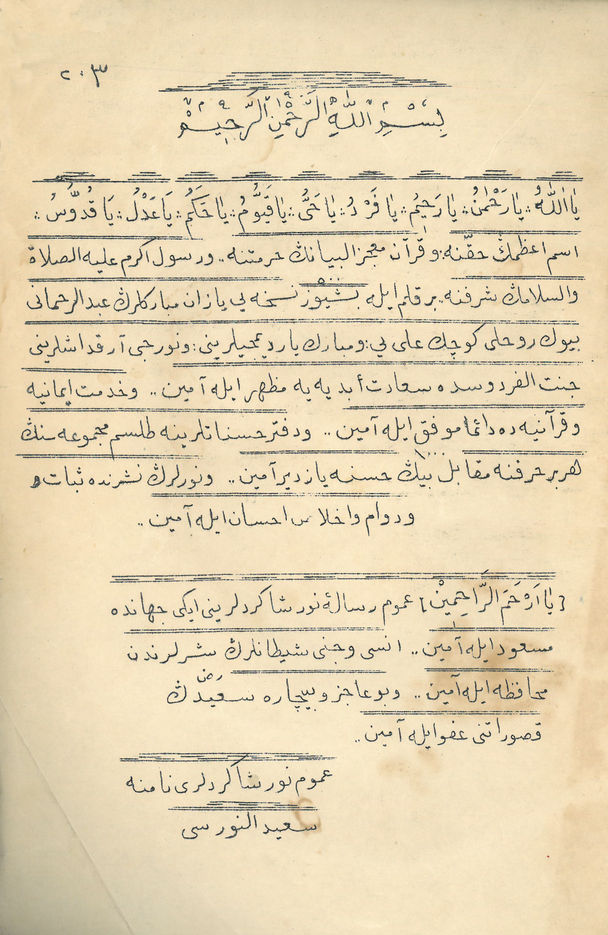 ٢٠٣
بِسْمِ اللّٰهِ الرَّحْمٰنِ الرَّحِيمِ
يَا اَللّٰهُ ؞ يَا رَحْمٰنُ ؞ يَا رَحِيمُ ؞ يَا فَرْدُ ؞ يَا حَىُّ ؞ يَا قَيُّومُ ؞ يَا حَكَمُ ؞ يَا عَدْلُ ؞ يَا قُدُّوسُ ؞
اسم اعظمك حقّنه: وقرآن معجز البيانك حرمتنه .. ورسول اكرم عليه الصلاة
والسلامك شرفنه. بر قلم ايله بشيوز نسخه يى يازان مباركلرك عبد الرحمانى
بيوك روحلى كوچك على يى: ومبارك ياردیمجيلرينى: ونورجى آرقداشلرينى
جنت الفردوسده سعادت أبديه يه مظهر ايله آمين .. وخدمت ايمانيه
وقرآنيه ده دائما موفق ايله آمين .. ودفتر حسناتلرينه طلسم مجموعه سنك
هر بر حرفنه مقابل بيك حسنه يازدير آمين .. ونورلرك نشرنده ثبات و
ودوام واخلاص احسان ايله آمين ..
[يَا اَرْحَمَ الرَّاحِمِينْ] عموم رسالۀ نور شاكردلرينى ايكى جهانده
مسعود ايله آمين .. انسى وجنى شيطانلرك شرلرندن
محافظه ايله آمين .. وبو عاجز وبيچاره سعيدك
قصوراتنى عفو ايله آمين ..
عموم نور شاكردلرى نامنه
سعيد النورسى